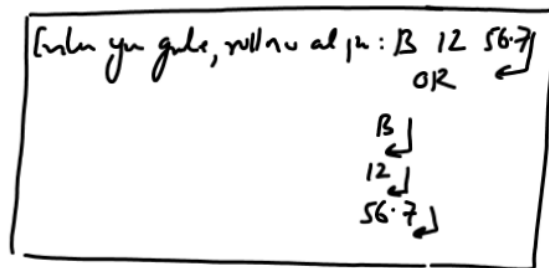 Enter your grade, rollno and per: B 12 56.7
OR
B
12
56.7